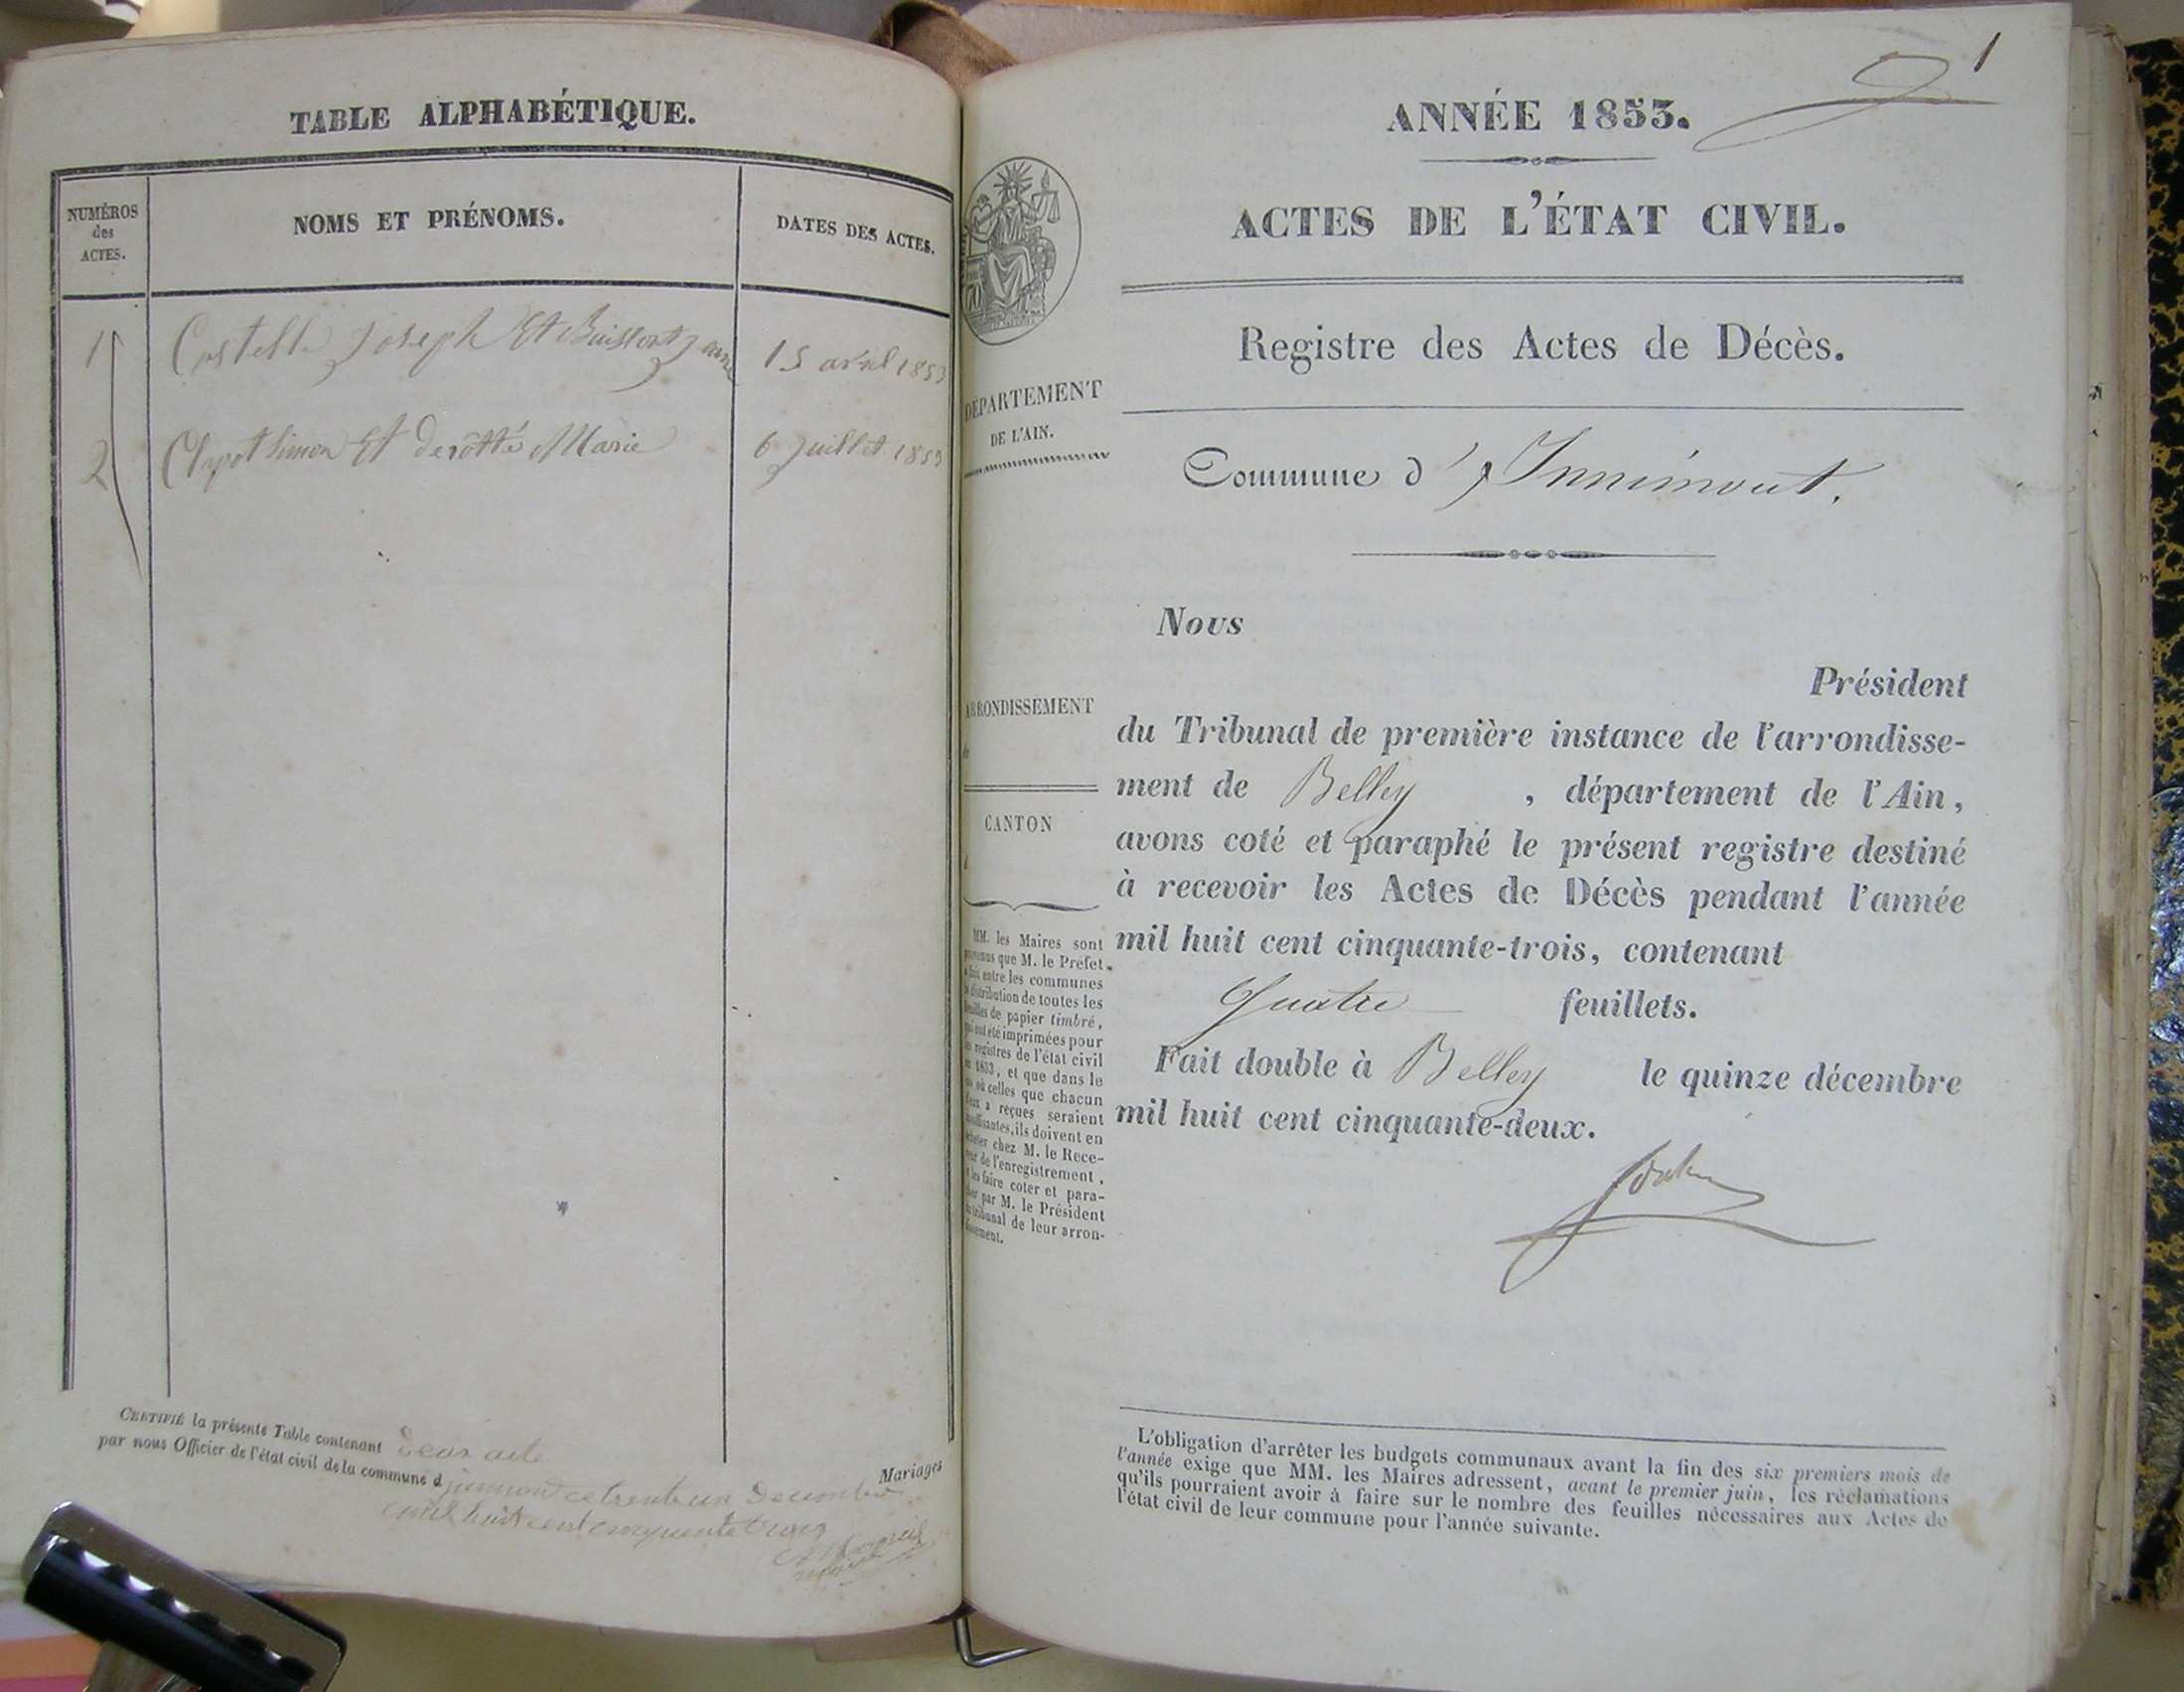 TABLE ALPHABÉTIQUE.
NUMÉROS
des
ACTES.
NOMS ET PRÉNOMS.
DATES DES ACTES.
1 Joseph Et 15 avril 1853
2 Clapot Simon Et Marie 6 Juillet 1853
CERTIFIÉ la présente Table contenant deux acte
Mariages
par nous Officier de l'état civil de la commune d ce trente un Decembre
mil huit cent cinquante trois
1
ANNÉE 1853.
ACTES DE L'ÉTAT CIVIL.
Registre des Actes de Décès.
DÉPARTEMENT
DE L'AIN.
Commune d'Innimont.
Nous
Président
ARRONDISSEMENT
de
CANTON
du Tribunal de première instance de l'arrondisse-
ment de Belley , département de l'Ain,
avons coté et paraphé le présent registre destiné
à recevoir les Actes de Décès pendant l'année
mil huit cent cinquante-trois, contenant
Quatre feuillets.
Fait double à Belley le quinze décembre
mil huit cent cinquante-deux.
MM. les Maires sont
que M. le Préfet
entre les communes
distribution de toutes les
de papier timbré,
ont été imprimées pour
registres de l'état civil
1853, et que dans le
où celles que chacun
a reçues seraient
ils doivent en
chez M. le Rece-
de l'enregistrement,
les faire coter et para-
par M. le Président
tribunal de leur arron-
L'obligation d'arrêter les budgets communaux avant la fin des six premiers mois de
l'année exige que MM. les Maires adressent, avant le premier juin, les réclamations
qu'ils pourraient avoir à faire sur le nombre des feuilles nécessaires aux Actes de
l'état civil de leur commune pour l'année suivante.